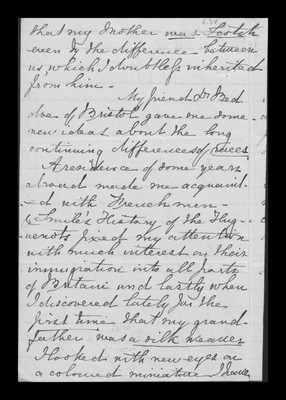 that my brother was Scotch
even by the difference between
us, which I doubtless inherited
from him -
My friend Dr Bed
doe of Bristol gave me some
new ideas about the long
continuing differences of races
A residence of some years
abroad made me acquaint-
ed with Frenchmen -
& Smile's History of the Hug-
uenots fixed my attention
with much interest on their
immigration into all parts
of Britain and lastly when
I discovered lately for the
first time that my grand-
father was a silk weaver
I looked with new eyes on
a coloured miniature I have